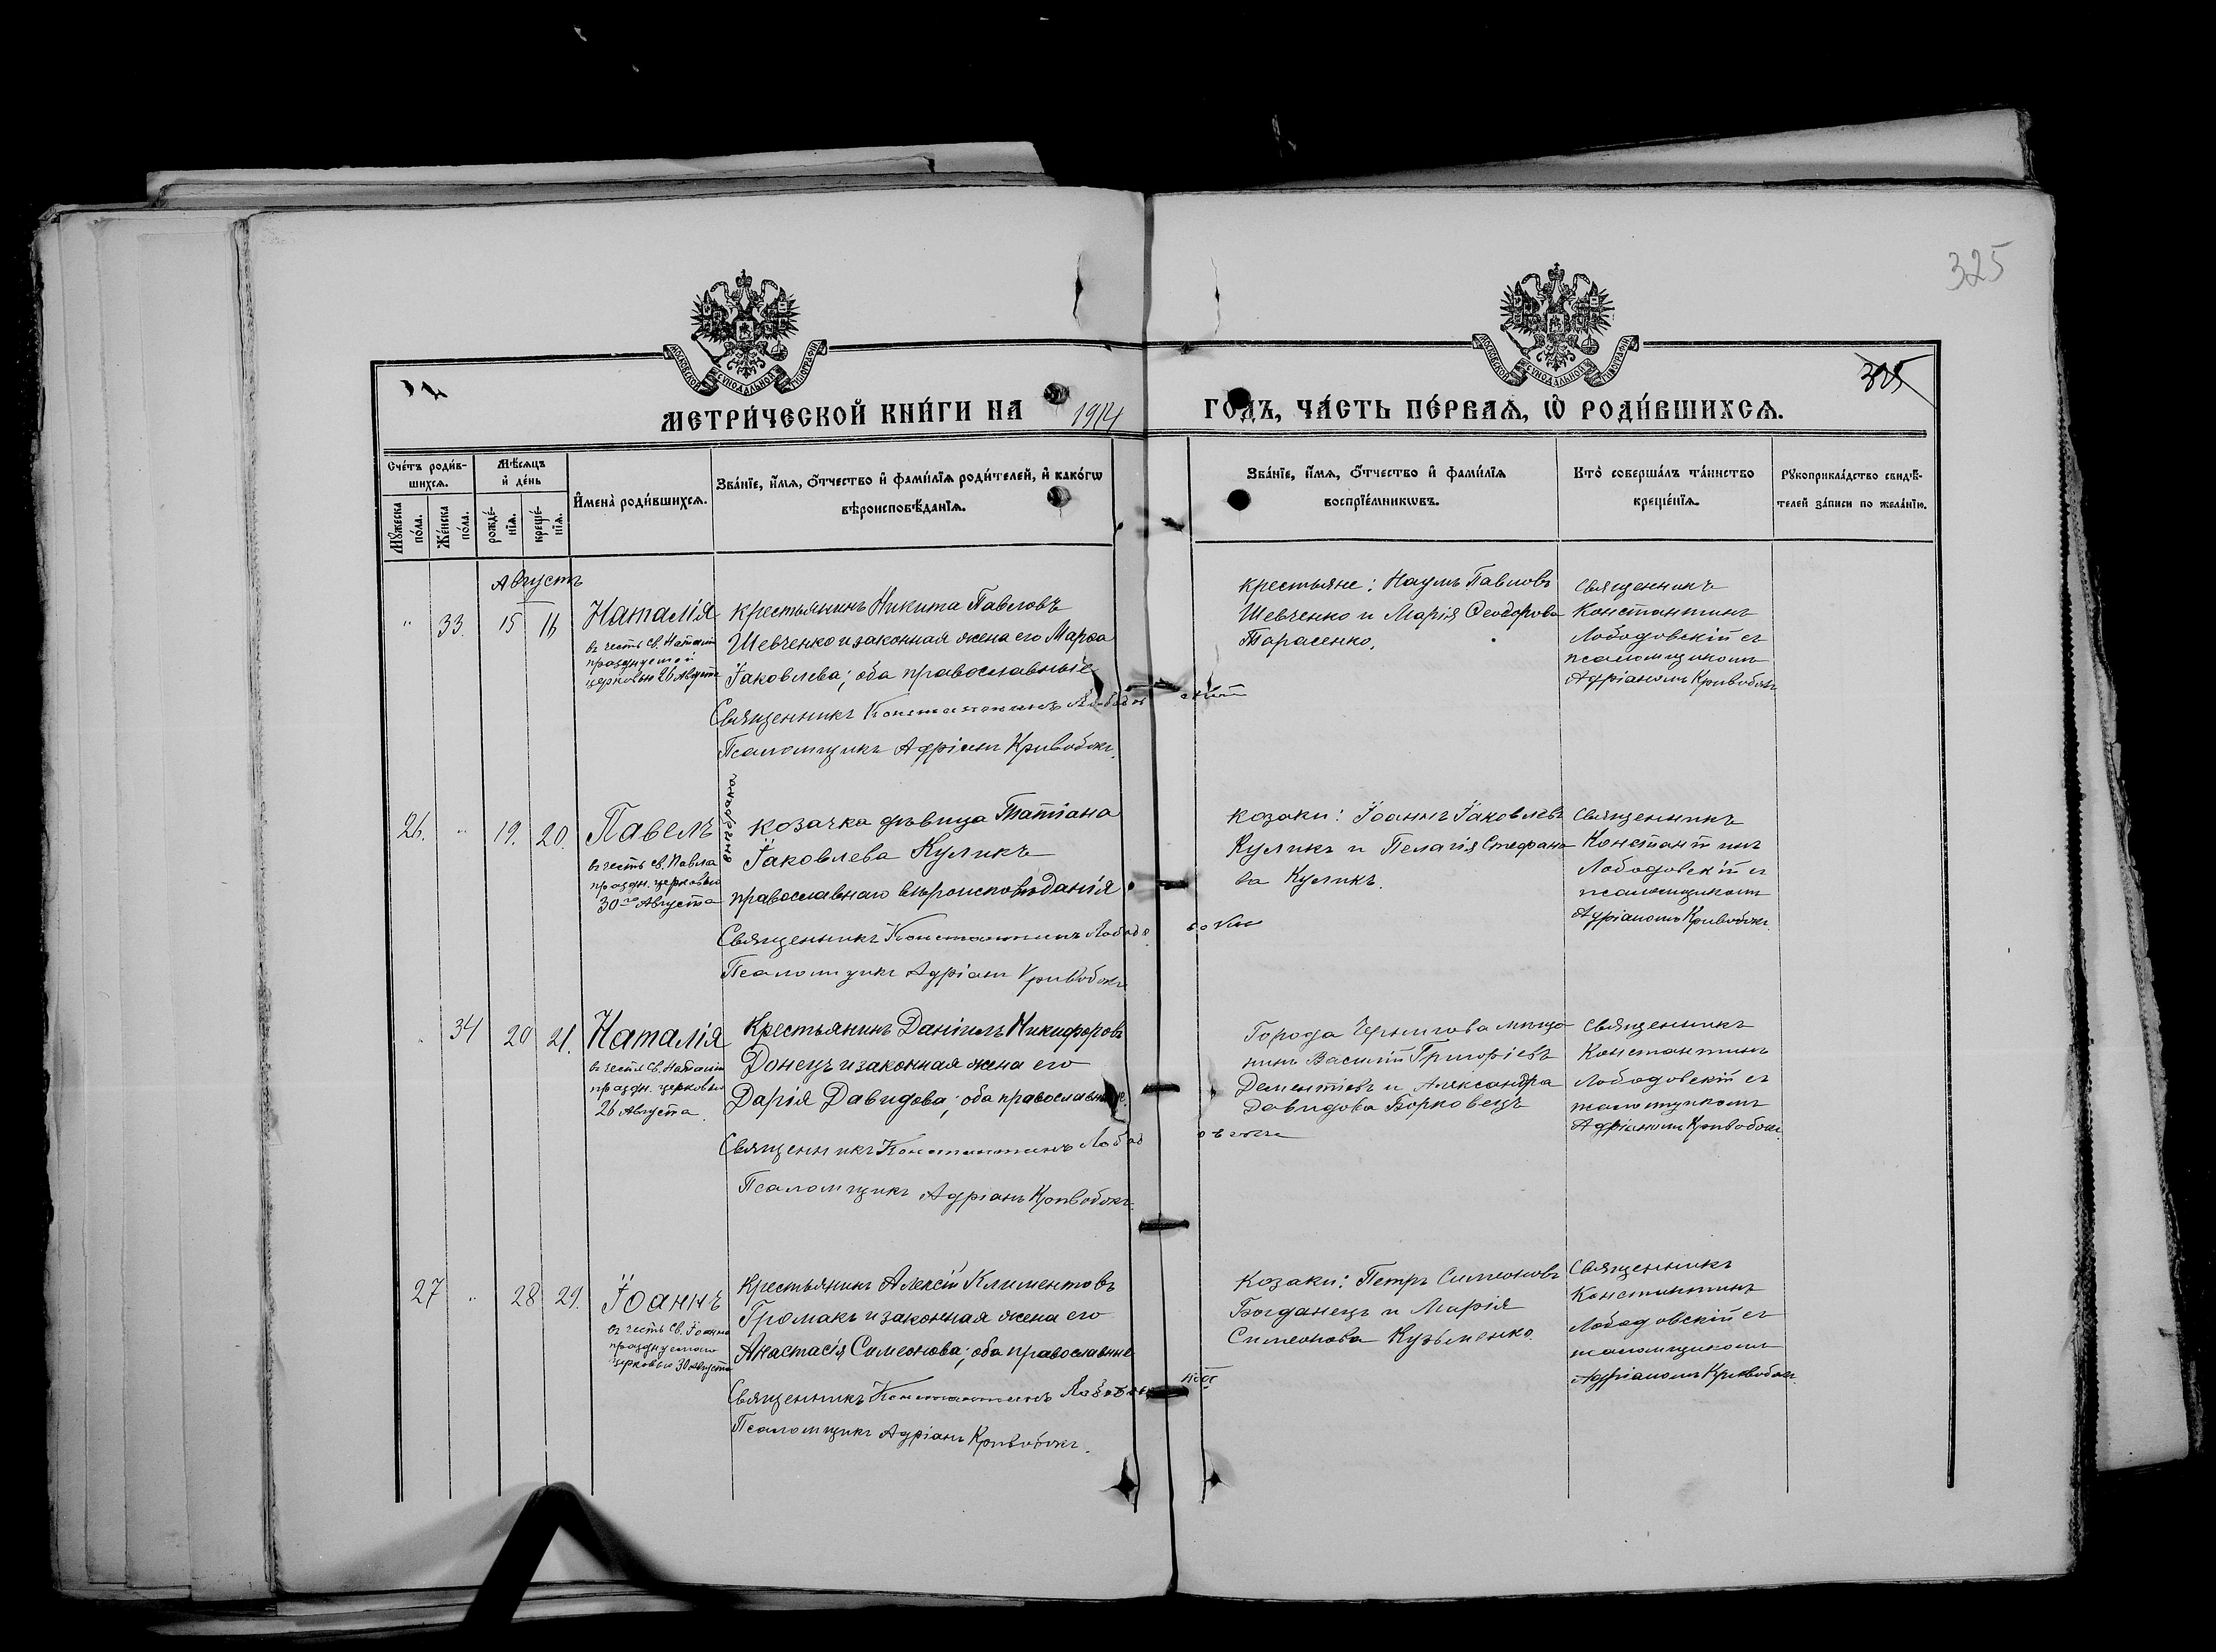 325
МОСКОВСКОЙ СѴНОДАЛЬНОЙ ТИПОГРАФІИ
МОСКОВСКОЙ СѴНОДАЛЬНОЙ ТИПОГРАФІИ
МЕТРИ́ЧЕСКОЙ КНИ́ГИ НА 1914 ГОДЪ, ЧА́СТЬ ПЕ́РВАѦ, Ѡ҆ РОДИ́ВШИХСѦ.
Сче́тъ роди́в-
шихсѧ.
Мꙋ́жеска по́ла.
Же́нска по́ла.
Мѣ́сѧцъ
и҆ де́нь
рожде́-
нїѧ.
креще́-
нїѧ.
И҆мена̀ роди́вшихсѧ.
Зва́нїе, и҆́мѧ, ѻ҆́тчество и҆ фами́лїѧ роди́телей, и҆ како́гѡ
вѣроисповѣ́данїѧ.
Зва́нїе, и҆́мѧ, ѻ҆́тчество и҆ фами́лїѧ
воспрїе́мникѡвъ.
Кто̀ соверша́лъ та́инство
креще́нїѧ.
Рꙋкоприкла́дство свидѣ́-
телей за́писи по жела́нїю.
Августъ
" 33. 15 16
Наталія
въ честь св. Наталіи
празднуемой
церковью 26 Августа
Крестьянинъ Никита Павловъ
Шевченко и законная жена его Марѳа
Іаковлева; оба православные
Священникъ Константинъ Лободовскій
Псаломщикъ Адріанъ Кривобокъ.
Крестьяне: Наумъ Павловъ
Шевченко и Марія Ѳеодорова
Тарасенко.
Священникъ
Константинъ
Лободовскій съ
псаломщикомъ
Адріаномъ Кривобокъ
26. " 19. 20.
Павелъ
въ честь св. Павла
праздн. церковью
30го Августа
Козачка дѣвица Татіана
Іаковлева Куликъ
православнаго вѣроисповѣданія
Священникъ Константинъ
Псаломщикъ Адріанъ Кривобокъ
Козаки: Іоаннъ Іаковлевъ
Куликъ и Пелагія Стефано
ва Куликъ.
Священникъ
Константинъ
Лободовскій съ
псаломщикомъ
Адріаномъ Кривобокъ.
" 34 20 21.
Наталія
въ честь св. Наталіи
праздн. церковью
26 Августа.
Крестьянинъ Даніилъ Никифоровъ
Донецъ и законная жена его
Дарія Давидова; оба православные.
Священникъ Константинъ
Псаломщикъ Адріанъ Кривобокъ.
Города Чернигова мѣща
нинъ Василій Григоріевъ
Дементіевъ и Александра
Давидова Борковецъ
Священникъ
Константинъ
Лободовскій съ
псаломщикомъ
Адріаномъ Кривобокъ.
27 " 28 29.
Іоаннъ
въ честь св. Іоанна
празднуемаго
церковью 30 Августа
Крестьянинъ Алексій Климентовъ
Громакъ и законная жена его
Анастасія Симеонова; оба православные
Священникъ Константинъ
Псаломщикъ Адріанъ Кривобокъ.
Козаки: Петръ Симеоновъ
Богданецъ и Марія
Симеонова Кузьменко.
Священникъ
Константинъ
Лободовскій съ
псаломщикомъ
Адріаномъ Кривобокъ.